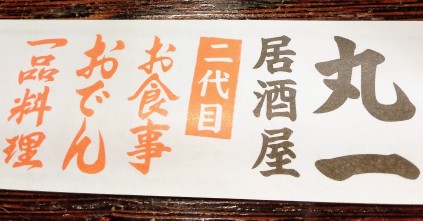 丸一
居酒屋
二代目
お食事
おでん
一品料理